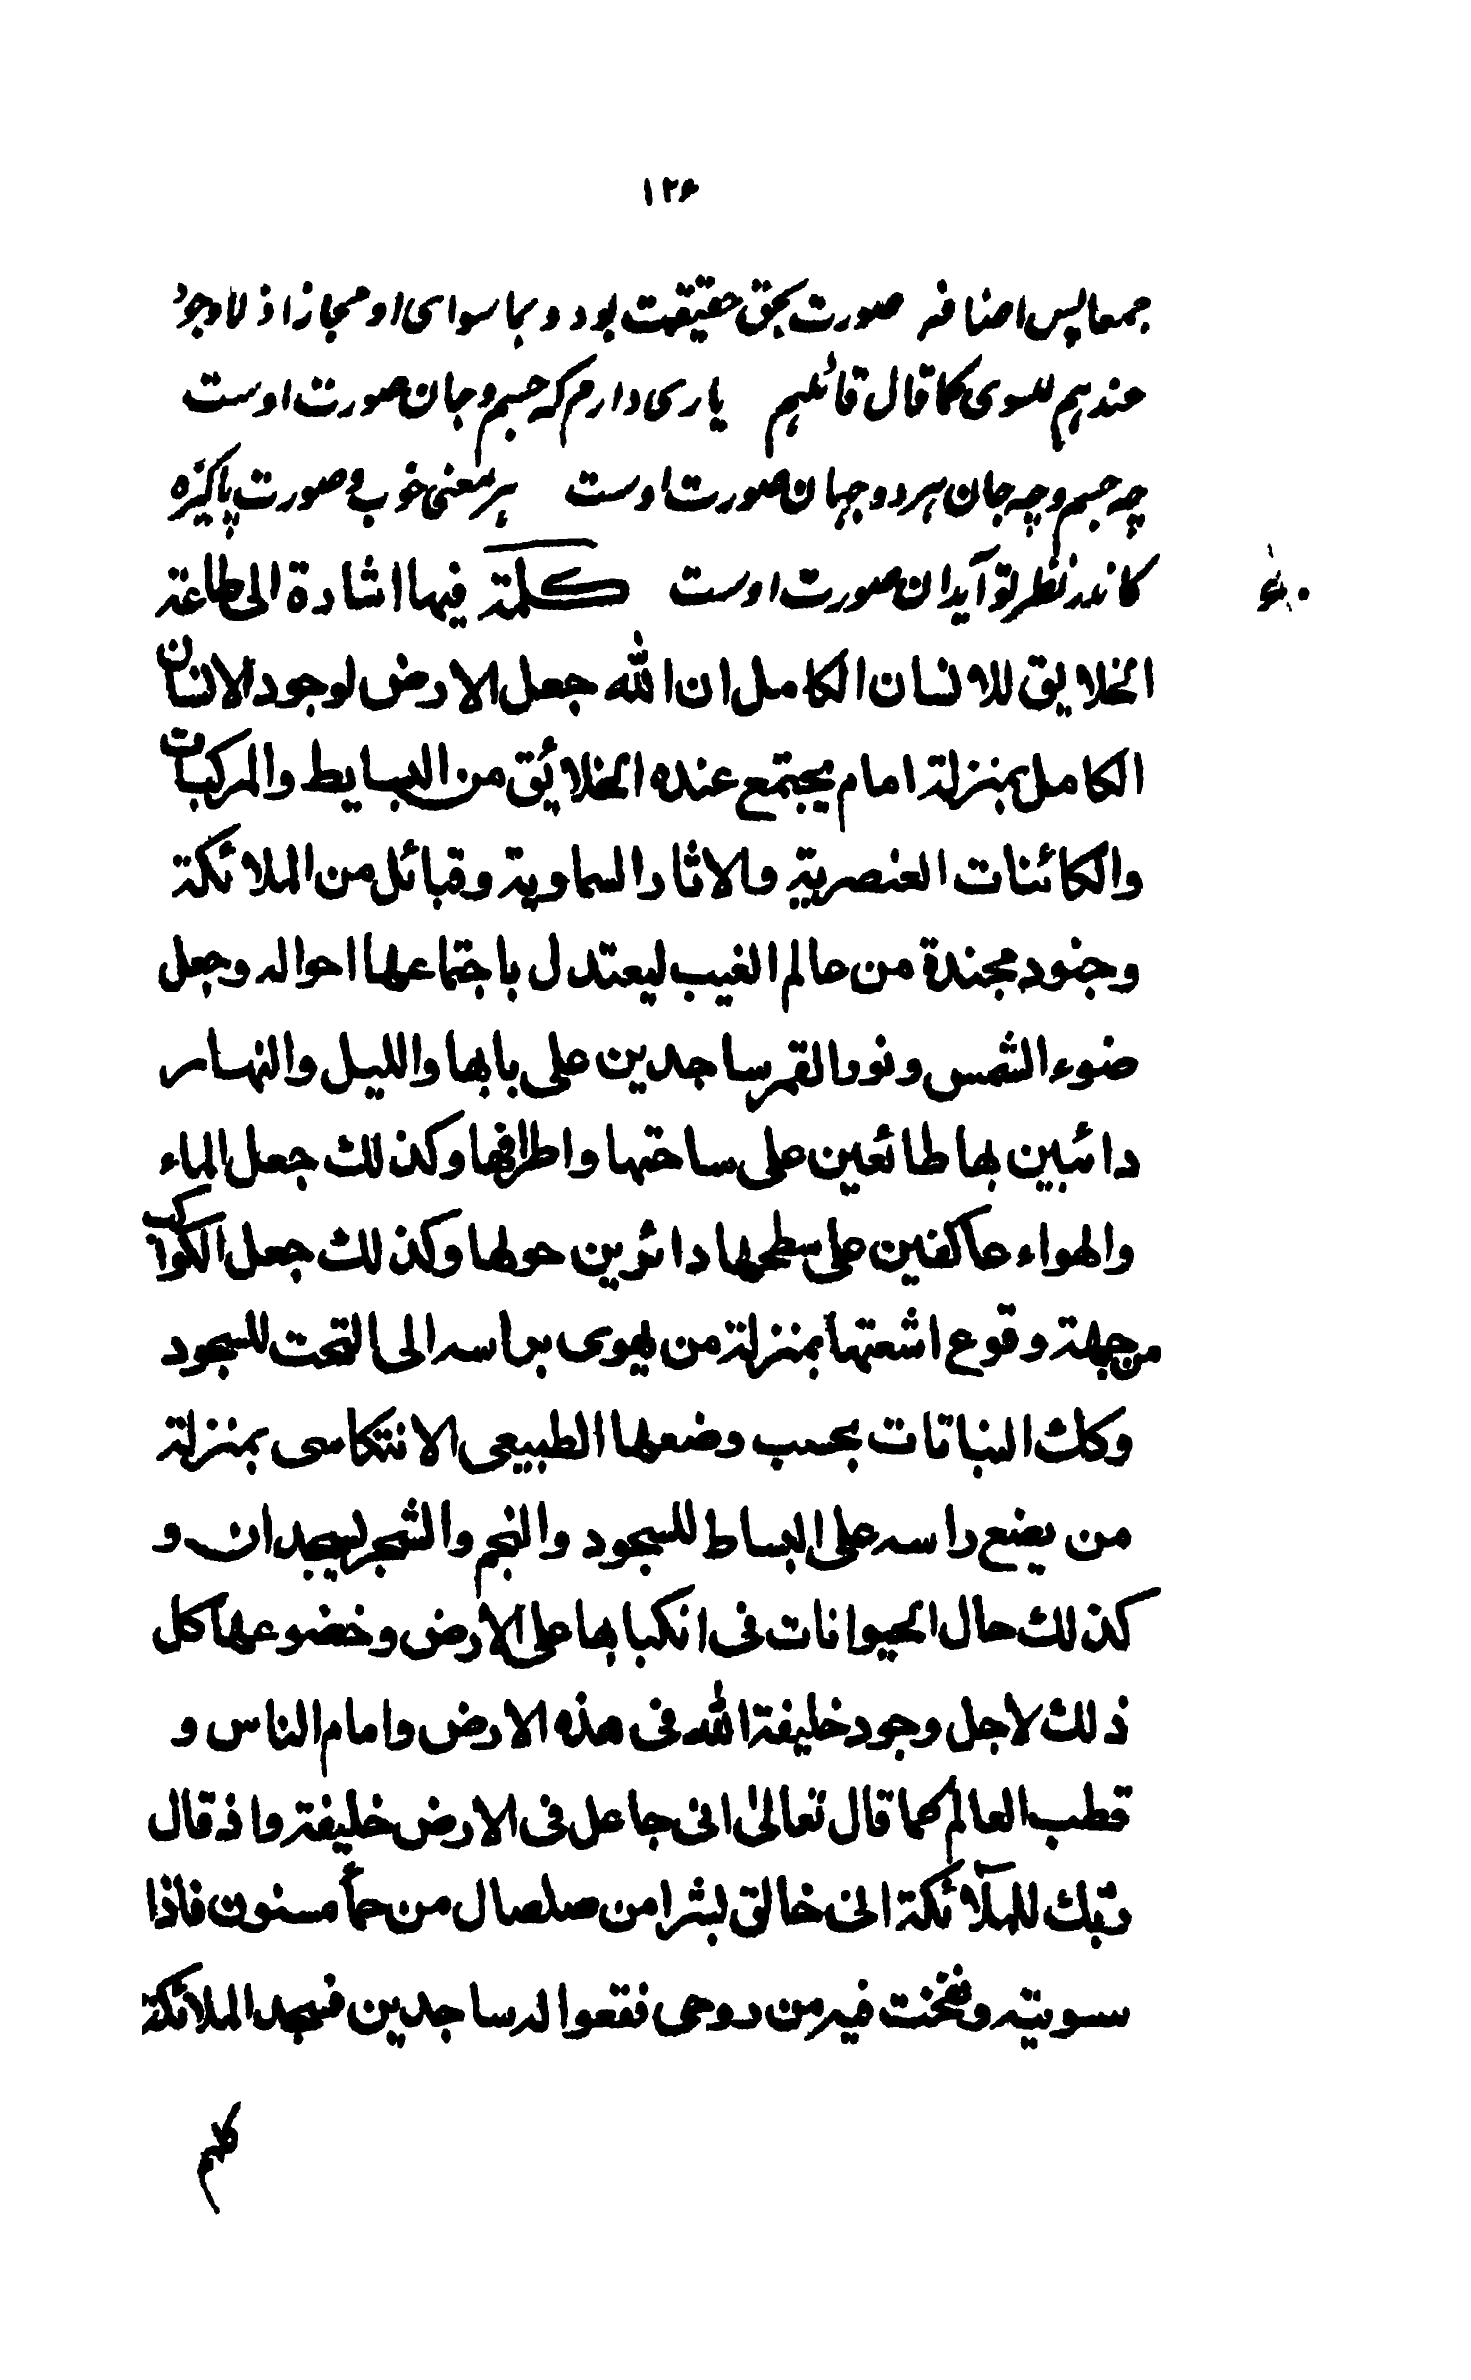 ۱۲۶
جمعا پس اضافه صورت بحق حقیقت بود و بما سوای او مجازا ذ لا وجود
عندهم للسوی کما قال قائلهم یاری دارم که جسم و جان صورت اوست
چه جسم و چه جان هر دو جهان صورت اوست هر معنی خوب و صورت پاکیزه
کاندر نظر تو آید ان صورت اوست کلمة فیها اشارة الی طاعة
الخلایق للانسان الکامل ان الله جعل الارض لوجود الانسان
الکامل بمنزلة امام یجتمع عنده الخلائق من البسایط والمرکبات
والکائنات العنصریة والاثار السماویة وقبائل من الملائکة
وجنود مجندة من عالم الغیب لیعتدل باجتماعها احواله وجعل
ضوء الشمس ونور القمر ساجدین علی بابها واللیل والنهار
دائبین بها طائعین علی ساحتها واطرافها وکذلک جعل الماء
والهواء عاکفین علی سطحها دائرین حولها وکذلک جعل الکواکب
من جهة وقوع اشعتها بمنزلة من یهوی براسه الی التحت للسجود
وکک النباتات بحسب وضعها الطبیعی الانتکاسی بمنزلة
من یضع راسه علی البساط للسجود والنجم والشجر یسجدان و
کذلک حال الحیوانات فی انکبابها علی الارض وخضوعها کل
ذلک لاجل وجود خلیفة الله فی هذه الارض وامام الناس و
قطب العالم کما قال تعالی انی جاعل فی الارض خلیفة واذ قال
ربک للملآئکة انی خالق بشرا من صلصال من حمأ مسنون فاذا
سویته ونفخت فیه من روحی فقعوا له ساجدین فسجد الملائکة
کلهم